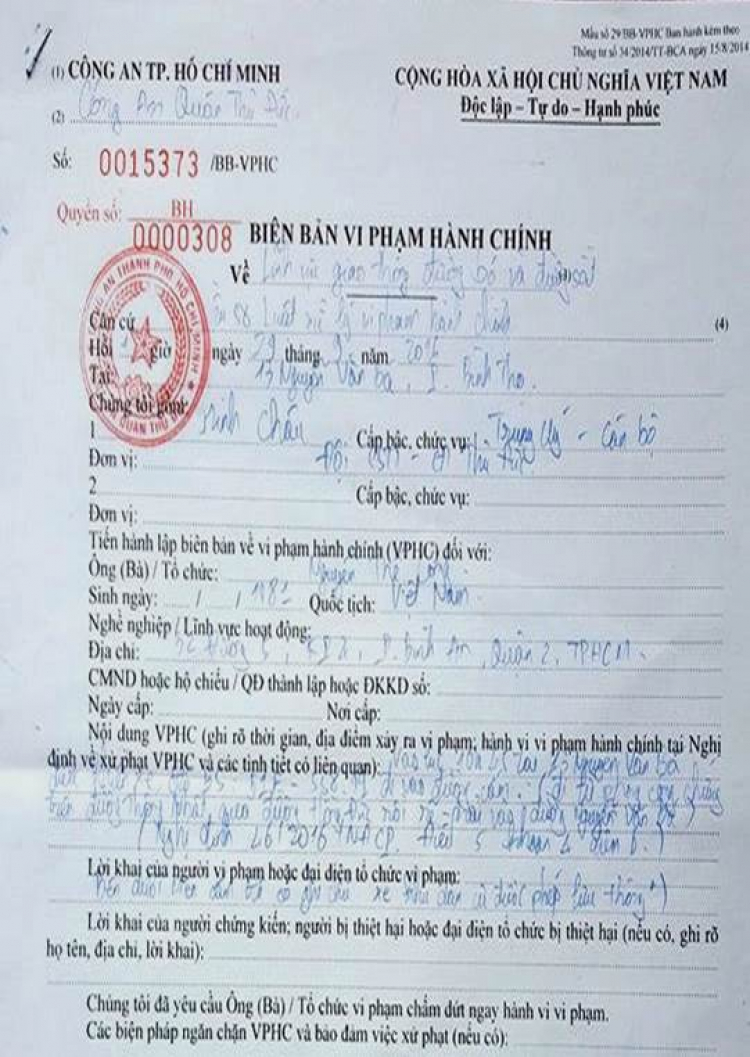 Mẫu số 29/BB-VPHC Ban hành kèm theo
Thông tư số 34/2014/TT-BCA ngày 15/8/2014
(1) CÔNG AN TP. HỒ CHÍ MINH
CỘNG HÒA XÃ HỘI CHỦ NGHĨA VIỆT NAM
Độc lập – Tự do – Hạnh phúc
(2) Công An Quận Thủ Đức
Số: 0015373 /BB-VPHC
Quyển số: BH
0000308 BIÊN BẢN VI PHẠM HÀNH CHÍNH
Về Lĩnh vực giao thông đường bộ và đường sắt
Căn cứ 58 Luật xử lý vi phạm hành chính (4)
Hồi giờ ngày 29 tháng 9 năm 2016
Tại: 13 Nguyễn Văn bá, P. Bình Thọ.
Chúng tôi gồm:
1 Minh Châu Cấp bậc, chức vụ: Trung úy - Cán bộ
Đơn vị: Đội
2 Cấp bậc, chức vụ:
Đơn vị:
Tiến hành lập biên bản về vi phạm hành chính (VPHC) đối với:
Ông (Bà) / Tổ chức: Nguyễn
Sinh ngày: / / Quốc tịch: Việt Nam.
Nghề nghiệp / Lĩnh vực hoạt động:
Địa chỉ: P. Bình An, Quận 2, TPHCM.
CMND hoặc hộ chiếu / QĐ thành lập hoặc ĐKKD số:
Ngày cấp: Nơi cấp:
Nội dung VPHC (ghi rõ thời gian, địa điểm xảy ra vi phạm; hành vi vi phạm hành chính tại Nghị
định về xử phạt VPHC và các tình tiết có liên quan): Vào lúc tại 13 Nguyễn Văn bá
đi vào đường cấm
trên đường Thống Nhất, qua đường vào đường Nguyễn Văn Bá
(Nghị định 46/2016 NĐCP. Điều 5 khoản 4 điểm b.)
Lời khai của người vi phạm hoặc đại diện tổ chức vi phạm:
bên dưới có ghi chú xe được phép lưu thông")
Lời khai của người chứng kiến; người bị thiệt hại hoặc đại diện tổ chức bị thiệt hại (nếu có, ghi rõ
họ tên, địa chỉ, lời khai):
Chúng tôi đã yêu cầu Ông (Bà) / Tổ chức vi phạm chấm dứt ngay hành vi vi phạm.
Các biện pháp ngăn chặn VPHC và bảo đảm việc xử phạt (nếu có):